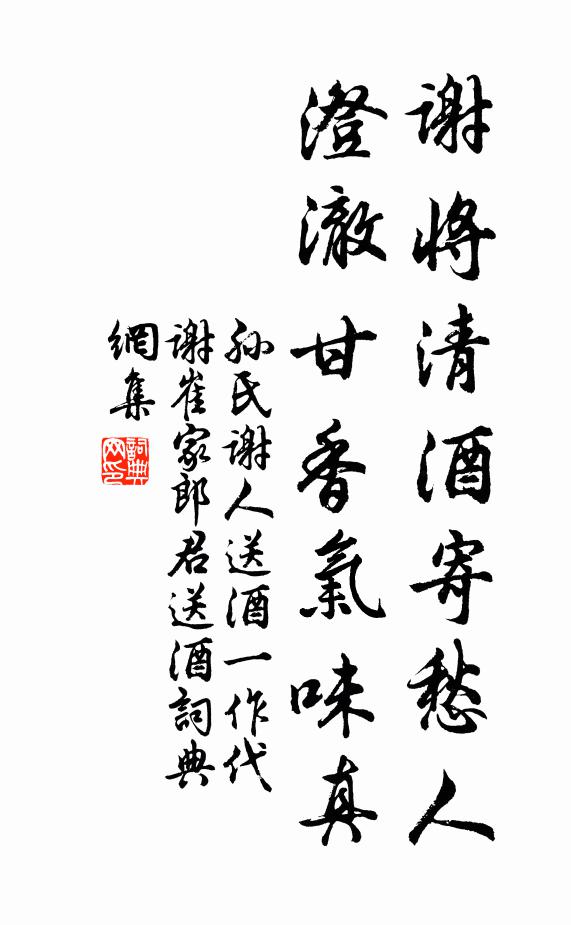 謝將清酒寄愁人
澄澈甘香氣味真
孙氏謝人送酒一作代
謝崔家郎君送酒詞典
網集
詞典
网印